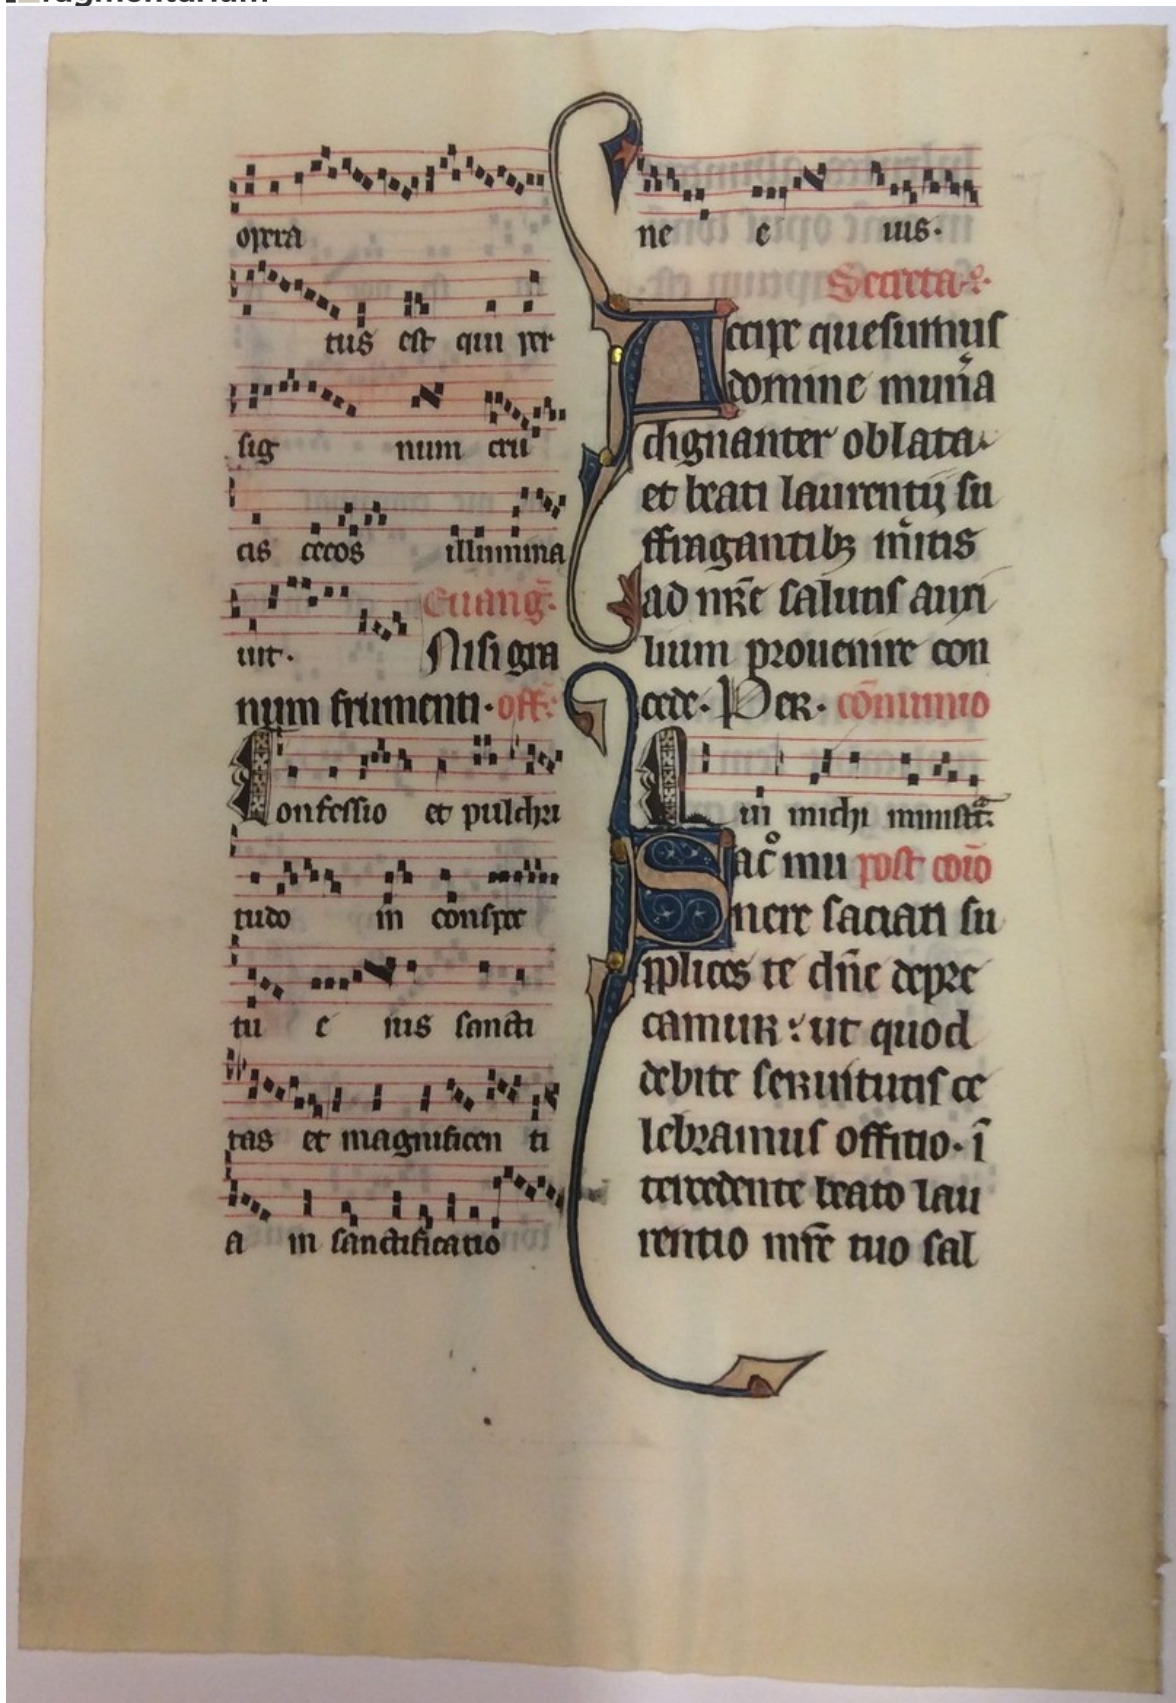 opera
tus est qui per
sig num cru
cis cecos illumina
uit. Euang̅.
Nisi gra
num frumenti. off̅.
Confessio et pulchri
tudo in conspec
tu e ius sancti
tas et magnificen ti
a in sanctificatio
ne e ius.
Secreta.
Accipe quesumus
domine mun̾a
dignanter oblata.
et beati laurentij su
ffragantibꝫ m̾itis
ad nr̅e salutis auxi
lium prouenire con
cede. Per. co̅munio
Qui michi ministͣ.
Sac̊ mu post co̅io
nere saciati su
pplices te dn̅e depre
camur: ut quod
debite seruitutis ce
lebramus offitio. i̅
tercedente beato lau
rentio mr̅e tuo sal